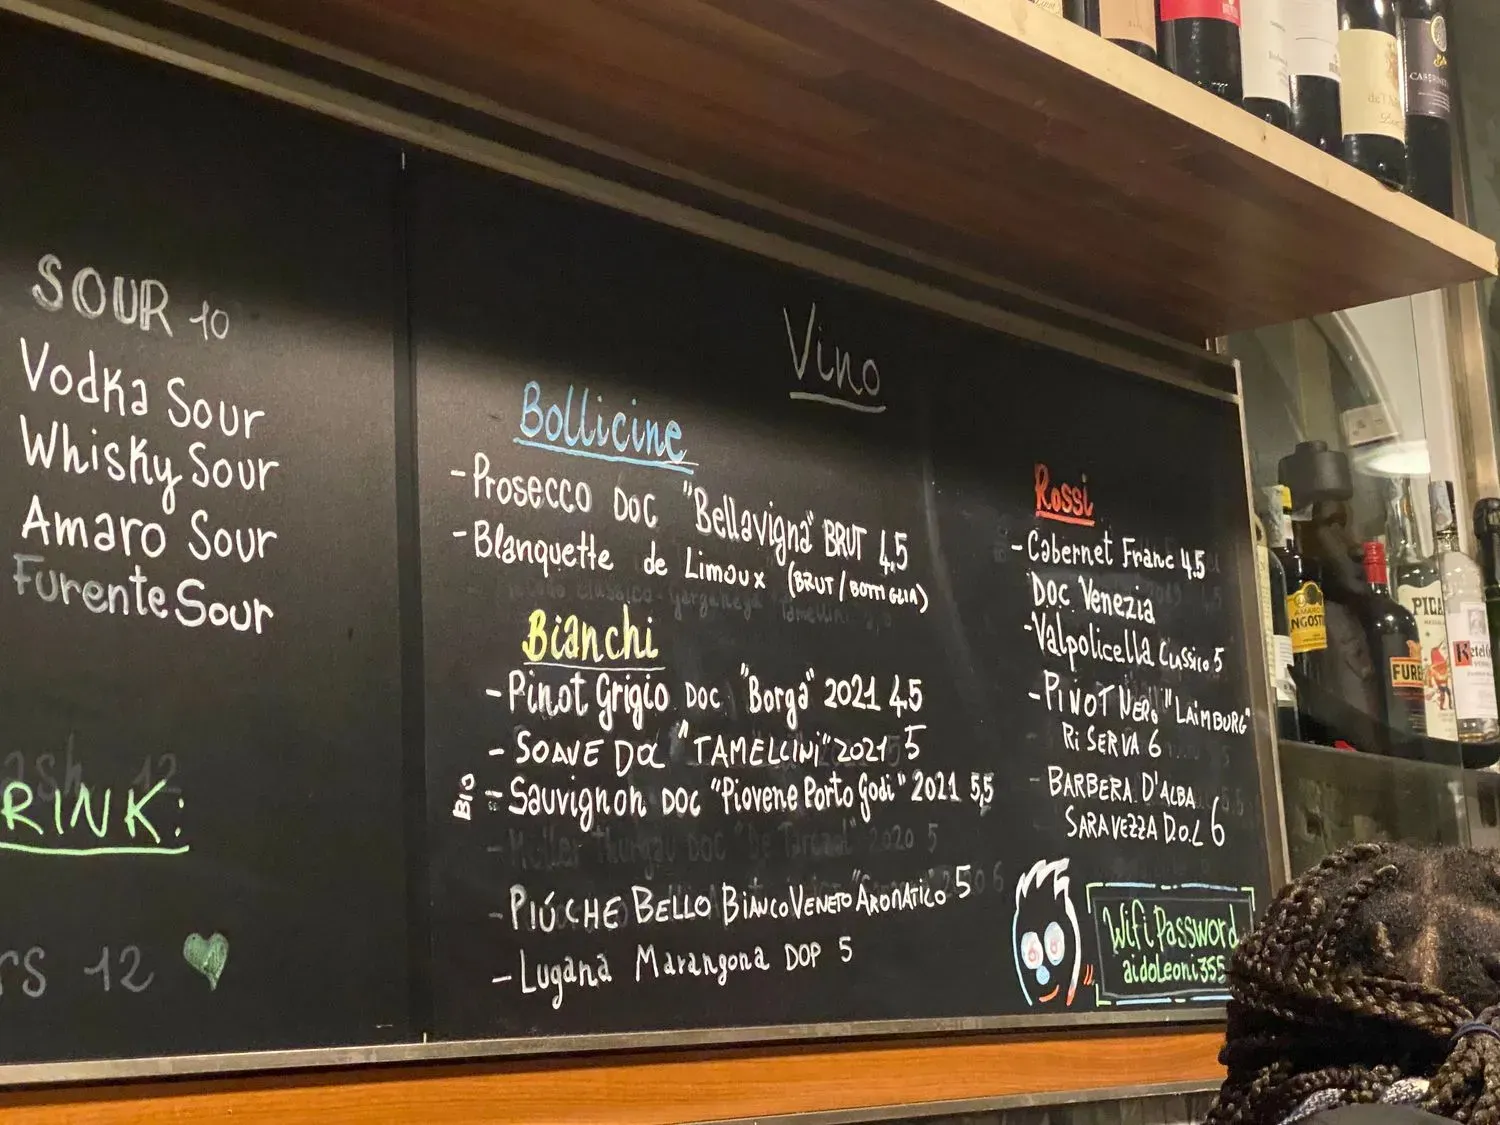 SOUR 10
Vodka Sour
Whisky Sour
Amaro Sour
Furente Sour
ash 12
RINK:
rs 12
Vino
Bollicine
- Prosecco DOC "Bellavigna" BRUT 4.5
- Blanquette de Limoux (BRUT/BOTTIGLIA)
Bianchi
- Pinot Grigio DOC "Borga" 2021 4.5
- SOAVE DOC "TAMELLINI" 2021 5
BIO - Sauvignon DOC "Piovene Porto Godi" 2021 5,5
- Müller Thurgau DOC 2020 5
- PIÚ CHE BELLO BIANCO VENETO AROMATICO 5
- Lugana Marangona DOP 5
Rossi
- Cabernet Franc 4.5
DOC Venezia
- Valpolicella Classico 5
- PINOT NERO "LAIMBURG"
RISERVA 6
- BARBERA D'ALBA
SARAVEZZA D.O.C 6
Wifi Password
aidoleoni355
CABERNET
AMARO
NGOST
FURE
PICA
Ketel